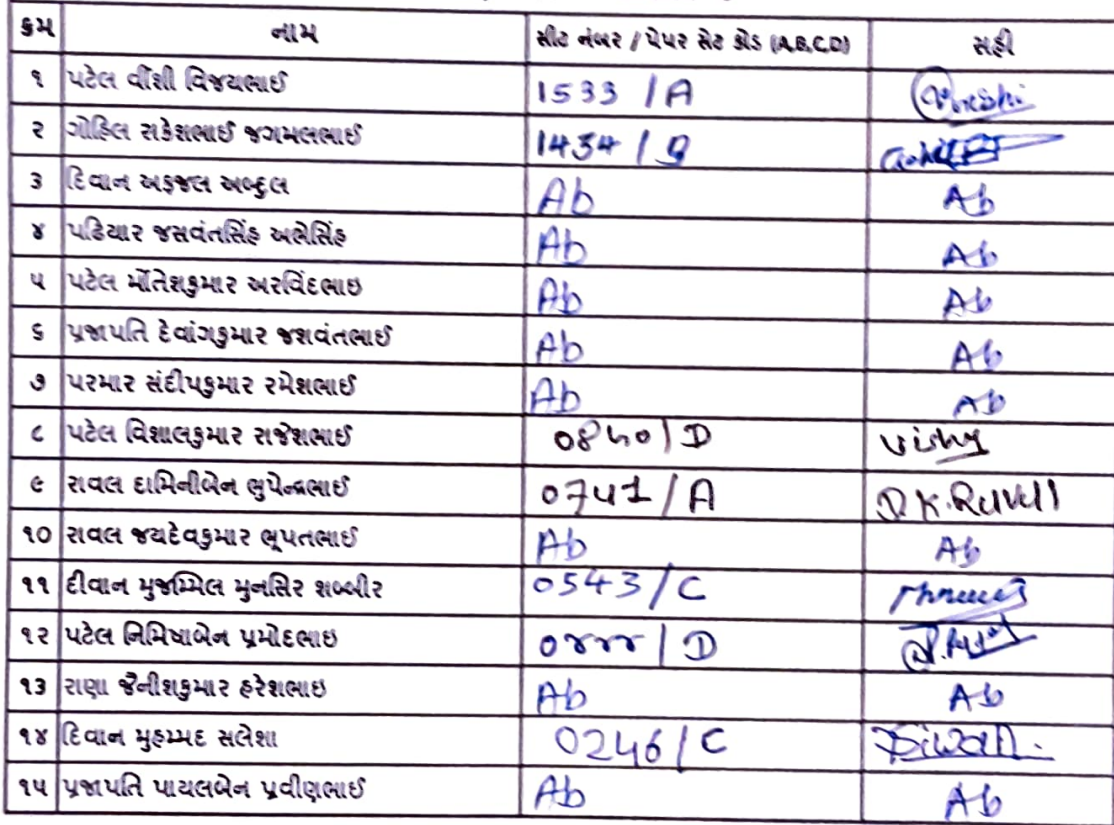 ક્રમ નામ સીટ નંબર / પેપર સેટ કોડ (A,B,C,D) સહી
૧ પટેલ વીંશી વિજયભાઈ 1533 / A
૨ ગોહિલ રાકેશભાઈ જગમલભાઈ 1434 /
૩ દિવાન અફજલ અબ્દુલ Ab Ab
૪ પઢિયાર જસવંતસિંહ અભેસિંહ Ab Ab
૫ પટેલ મીંતેશકુમાર અરવિંદભાઇ Ab Ab
૬ પ્રજાપતિ દેવાંગકુમાર જશવંતભાઈ Ab Ab
૭ પરમાર સંદીપકુમાર રમેશભાઈ Ab Ab
૮ પટેલ વિશાલકુમાર રાજેશભાઈ / D
૯ રાવલ દામિનીબેન ભુપેન્દ્રભાઈ 0741 / A
૧૦ રાવલ જયદેવકુમાર ભૂપતભાઈ Ab Ab
૧૧ દીવાન મુજમ્મિલ મુનસિર શબ્બીર 0543 / C
૧૨ પટેલ નિમિષાબેન પ્રમોદભાઇ / D
૧૩ રાણા જૈનીશકુમાર હરેશભાઇ Ab Ab
૧૪ દિવાન મુહમ્મદ સલેશા 0246 / C Diwan
૧૫ પ્રજાપતિ પાયલબેન પ્રવીણભાઈ Ab Ab